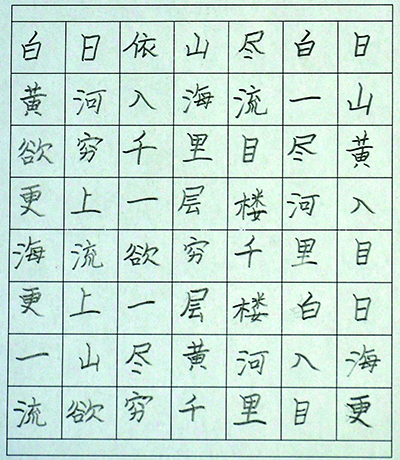 白日依山尽白日
黄河入海流一山
欲穷千里目尽黄
更上一层楼河入
海流欲穷千里目
更上一层楼白日
一山尽黄河入海
流欲穷千里目更